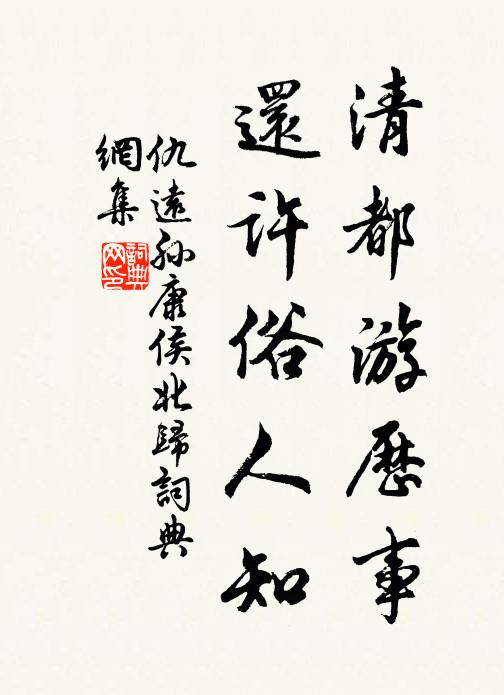 清都游歷事
還許俗人知
仇遠孫康侯北歸詞典
網集
詞典
网印